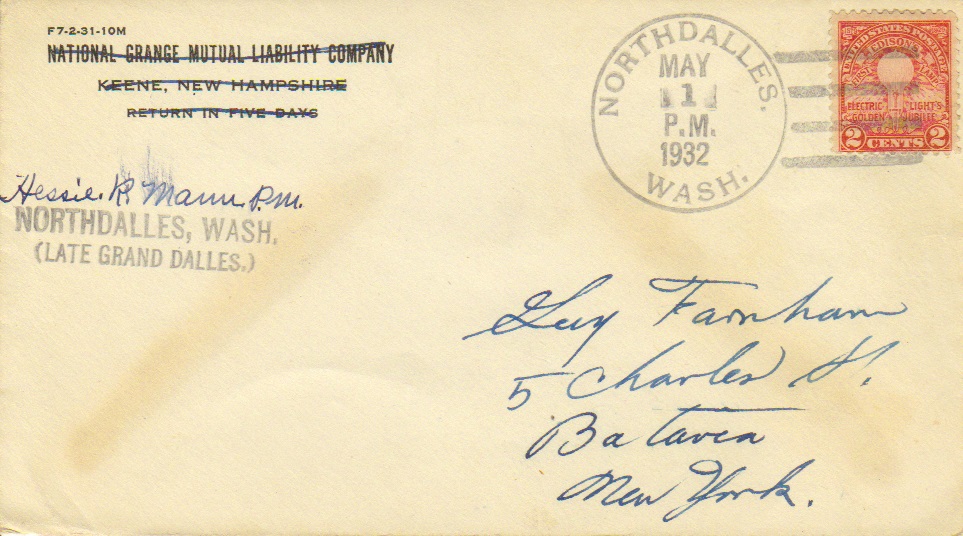 F7-2-31-10M
NATIONAL GRANGE MUTUAL LIABILITY COMPANY
KEENE, NEW HAMPSHIRE
RETURN IN FIVE DAYS
Hessie R. Mann P.M.
NORTHDALLES, WASH.
(LATE GRAND DALLES.)
NORTHDALLES.
MAY
1
P.M.
1932
WASH.
UNITED STATES POSTAGE
EDISON'S
FIRST LAMP
ELECTRIC LIGHT'S
GOLDEN JUBILEE
2 CENTS 2
Guy Farnham
5 Charles St.
Batavia
New York.